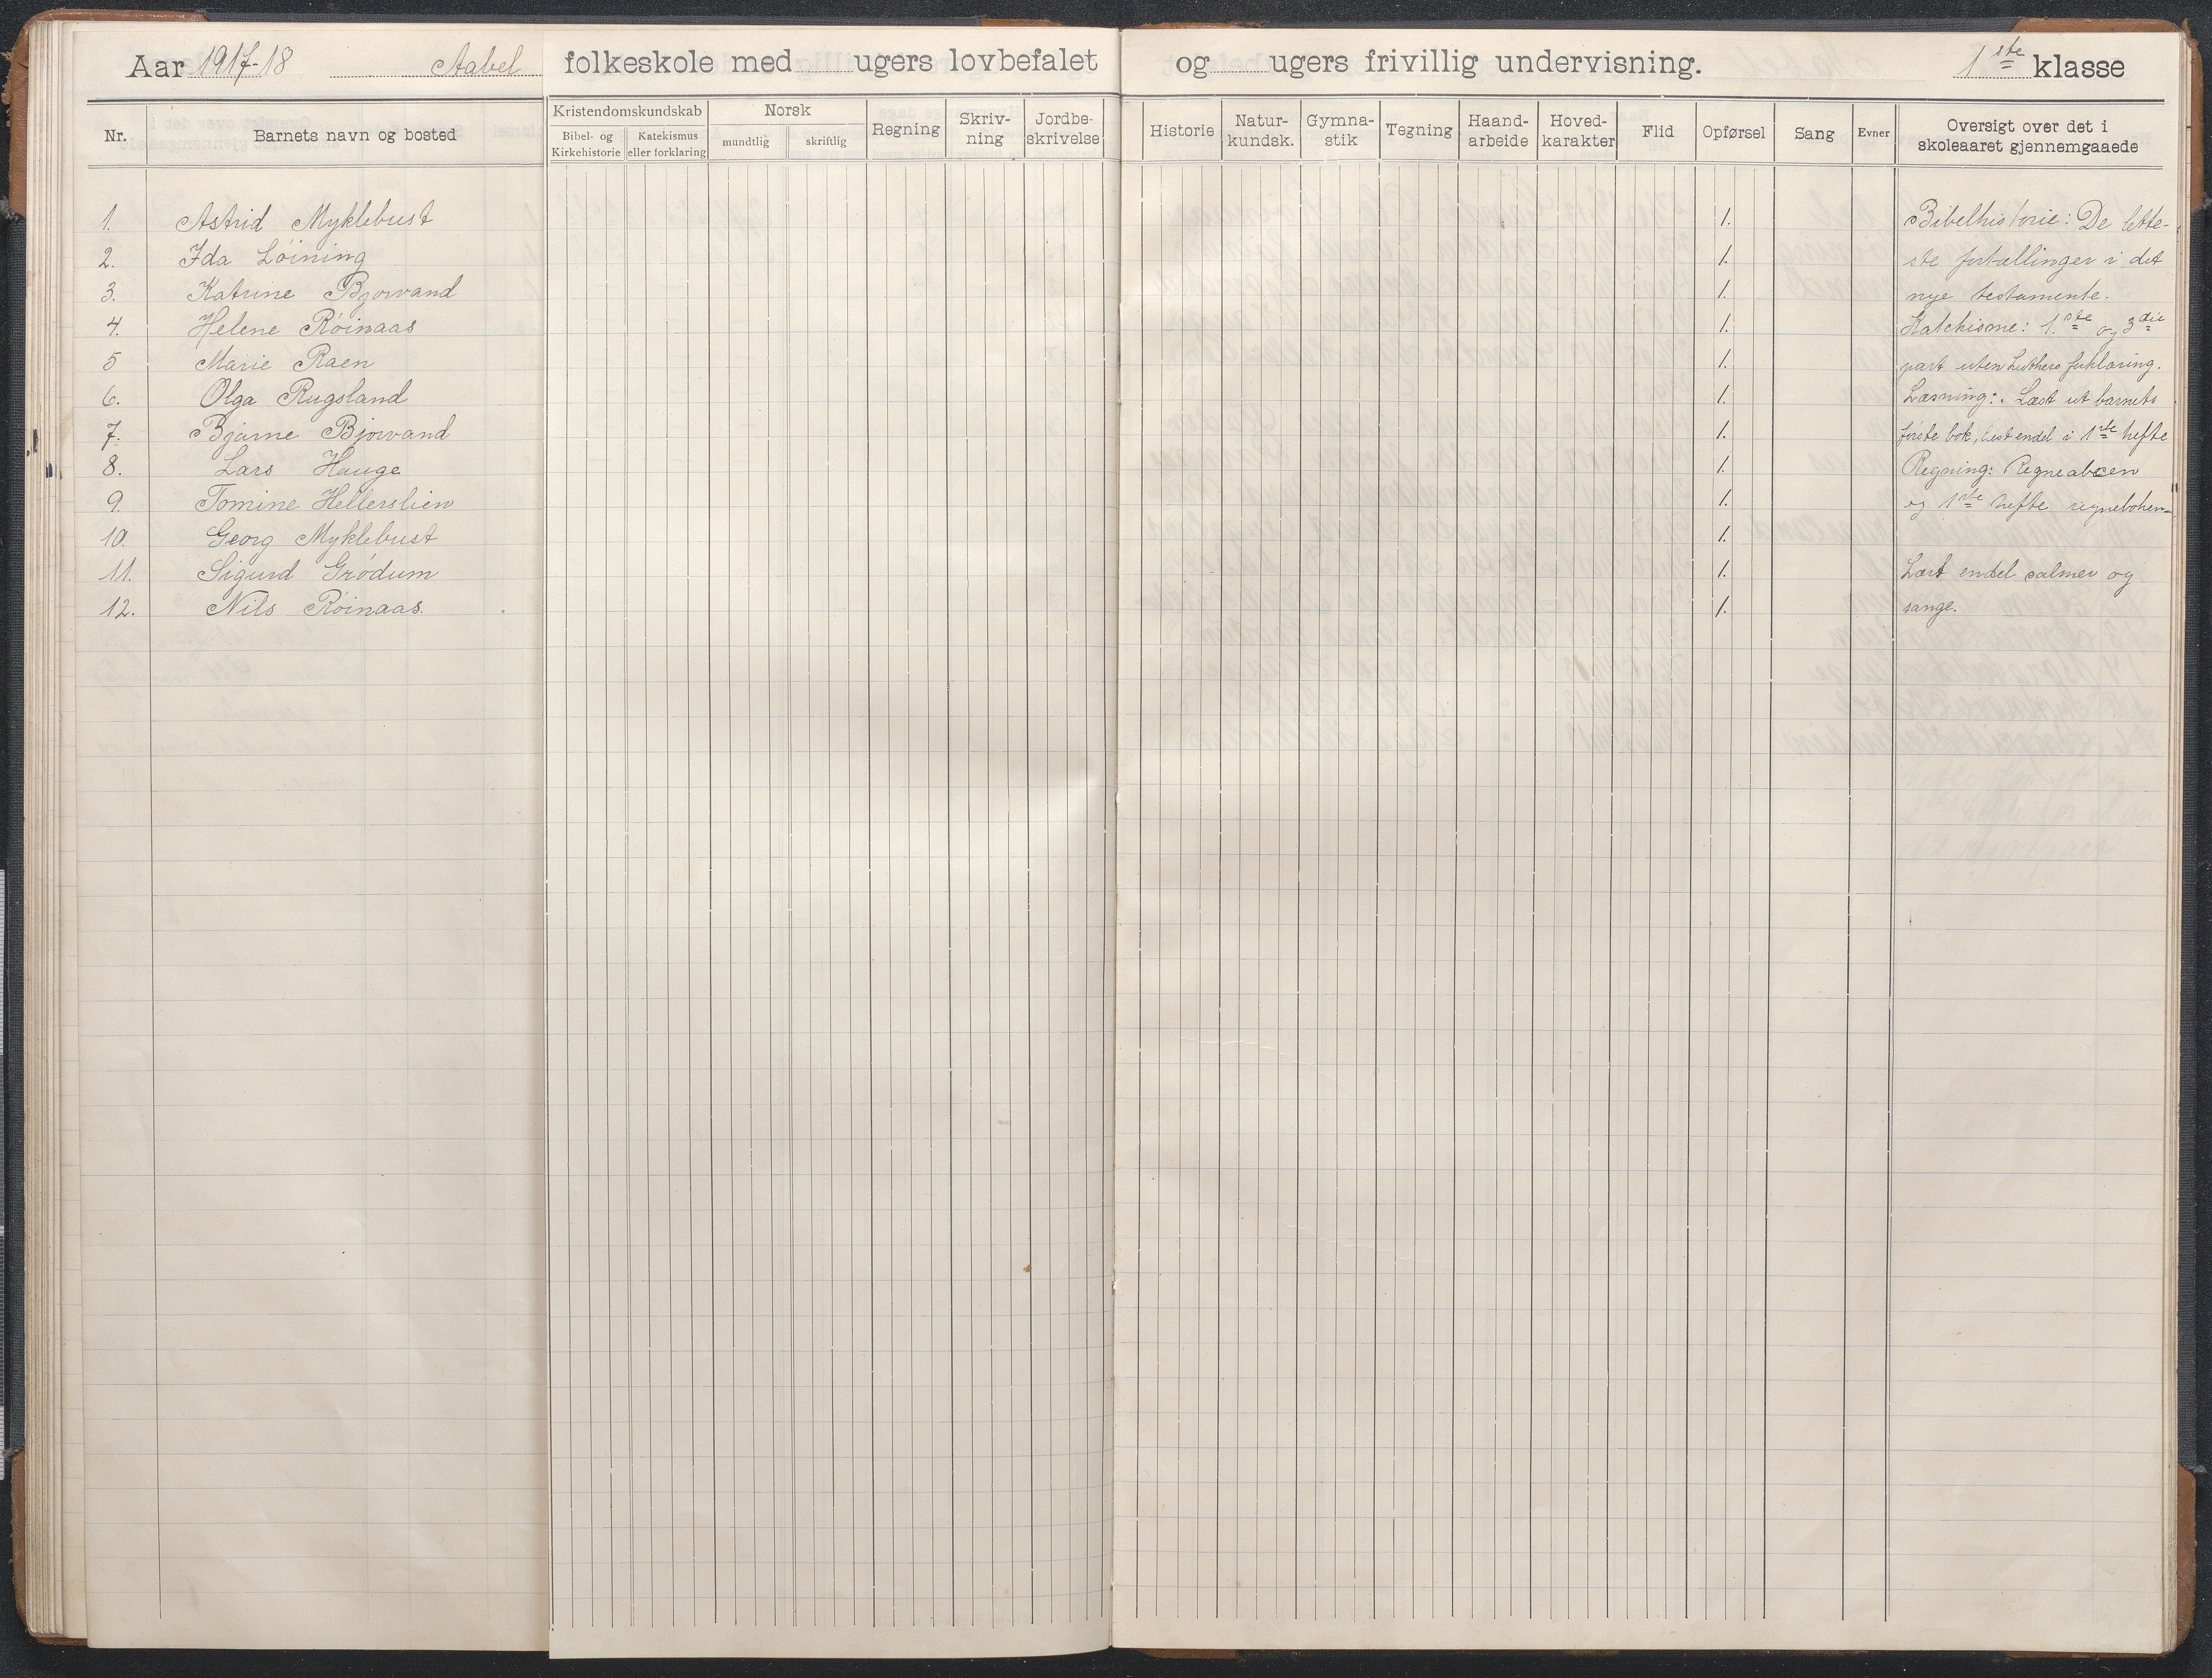 Aar 1917-18 Aabel folkeskole med ugers lovbefalet og ugers frivillig undervisning. 1ste klasse
Nr. Barnets navn og bosted Kristendomskundskab Bibel- og Kirkehistorie Katekismus eller forklaring Norsk mundtlig skriftlig Regning Skriv-ning Jordbe-skrivelse Historie Natur-kundsk. Gymna-stik Tegning Haand-arbeide Hoved-karakter Flid Opførsel Sang Evner Oversigt over det i skoleaaret gjennemgaaede
1. Astrid Myklebust 1. Bibelhistorie: De lette-
2. Ida Løining 1. ste fortællinger i det
3. Katrine Bjorvand 1. nye testamente.
4. Helene Røinaas 1. Katekisme: 1.ste og 3die
5 Marie Raen 1. part uten Luthers forklaring.
6. Olga Rugsland 1. Læsning: Læst ut barnets
7. Bjarne Bjorvand 1. første bok, læst endel i 1ste hefte
8. Lars Hauge 1. Regning: Regneabcen
9. Tomine Hellerslien 1. og 1ste hefte regneboken
10. Georg Myklebust 1.
11. Sigurd Grødum 1. Lært endel salmer og
12. Nils Røinaas. 1. sange.